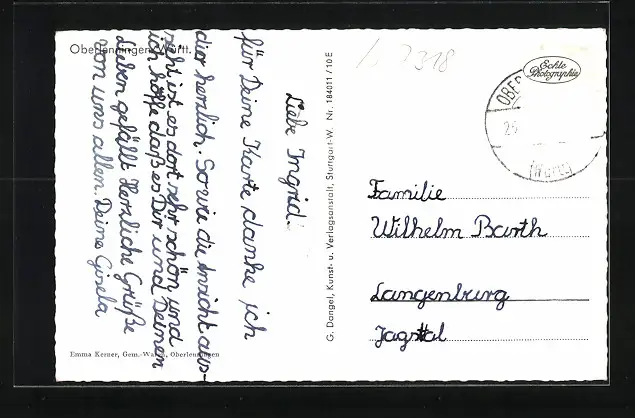 Oberlenningen/Württ.
Liebe Ingrid.
für Deine Karte danke ich
dir herzlich. So wie die Ansicht aus-
sieht ist es dort sehr schön und
ich hoffe daß es Dir und Deinen
Lieben gefällt Herzliche Grüße
von uns allen. Deine Gisela
Emma Kerner, Gem.-Waren, Oberlenningen
G. Dangel, Kunst- u. Verlagsanstalt, Stuttgart-W. Nr. 184011 / 10 E
7318
Echte
Photographie
OBER
(WÜRTT)
Familie
Wilhelm Barth
Langenburg
Jagsttal